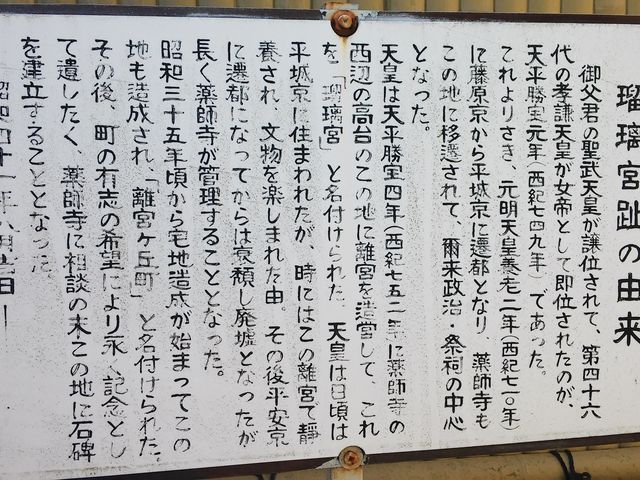 瑠璃宮趾の由来
御父君の聖武天皇が譲位されて、第四十六
代の孝謙天皇が女帝として即位されたのが、
天平勝宝元年(西紀七四九年)であった。
これよりさき、元明天皇養老二年(西紀七一〇年)
に藤原京から平城京に遷都となり、薬師寺も
この地に移遷されて、爾来政治・祭祠の中心
となった。
天皇は天平勝宝四年(西紀七五二年)に薬師寺の
西辺の高台のこの地に離宮を造営して、これ
を「瑠璃宮」と名付けられた。天皇は日頃は
平城京に住まわれたが、時にはこの離宮で静
養され、文物を楽しまれた由。その後平安京
に遷都になってからは衰頽し廃墟となったが
長く薬師寺が管理することとなった。
昭和三十五年頃から宅地造成が始まってこの
地も造成され「離宮ヶ丘町」と名付けられた。
その後、町の有志の希望により永く記念とし
て遺したく、薬師寺に相談の末この地に石碑
を建立することとなった。
昭和四十一年八月 日